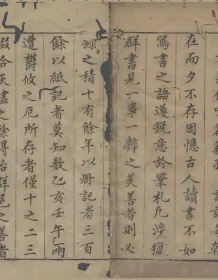 在而夕不存因憶古人讀書不如
寫書之語遂銳意於筆札凡涉獵
群書見一事一辭之美善者則必
錄之積十有餘年以册記者三百
餘以紙記者莫知數乙亥壬午兩
遭鬱攸之厄所存者僅十之二三
掇合灰燼之餘得